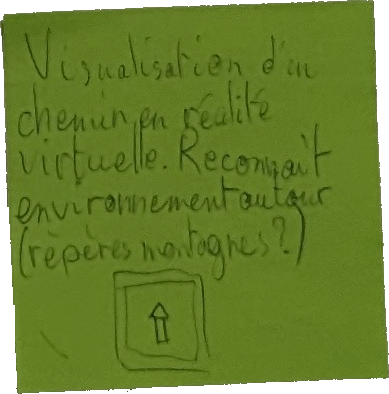 Visualisation d'un
chemin en réalité
virtuelle. Reconnait
environnement autour
(repères montagnes?)